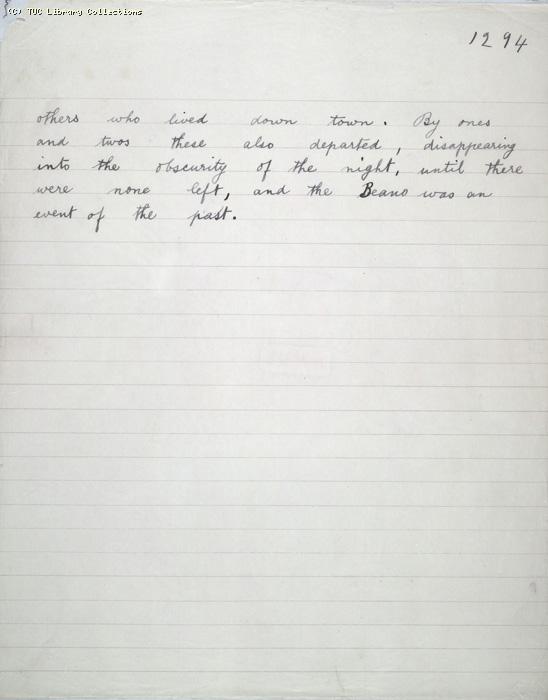 (C) TUC Library Collections
1294
others who lived down town. By ones
and twos these also departed, disappearing
into the obscurity of the night, until there
were none left, and the Beano was an
event of the past.